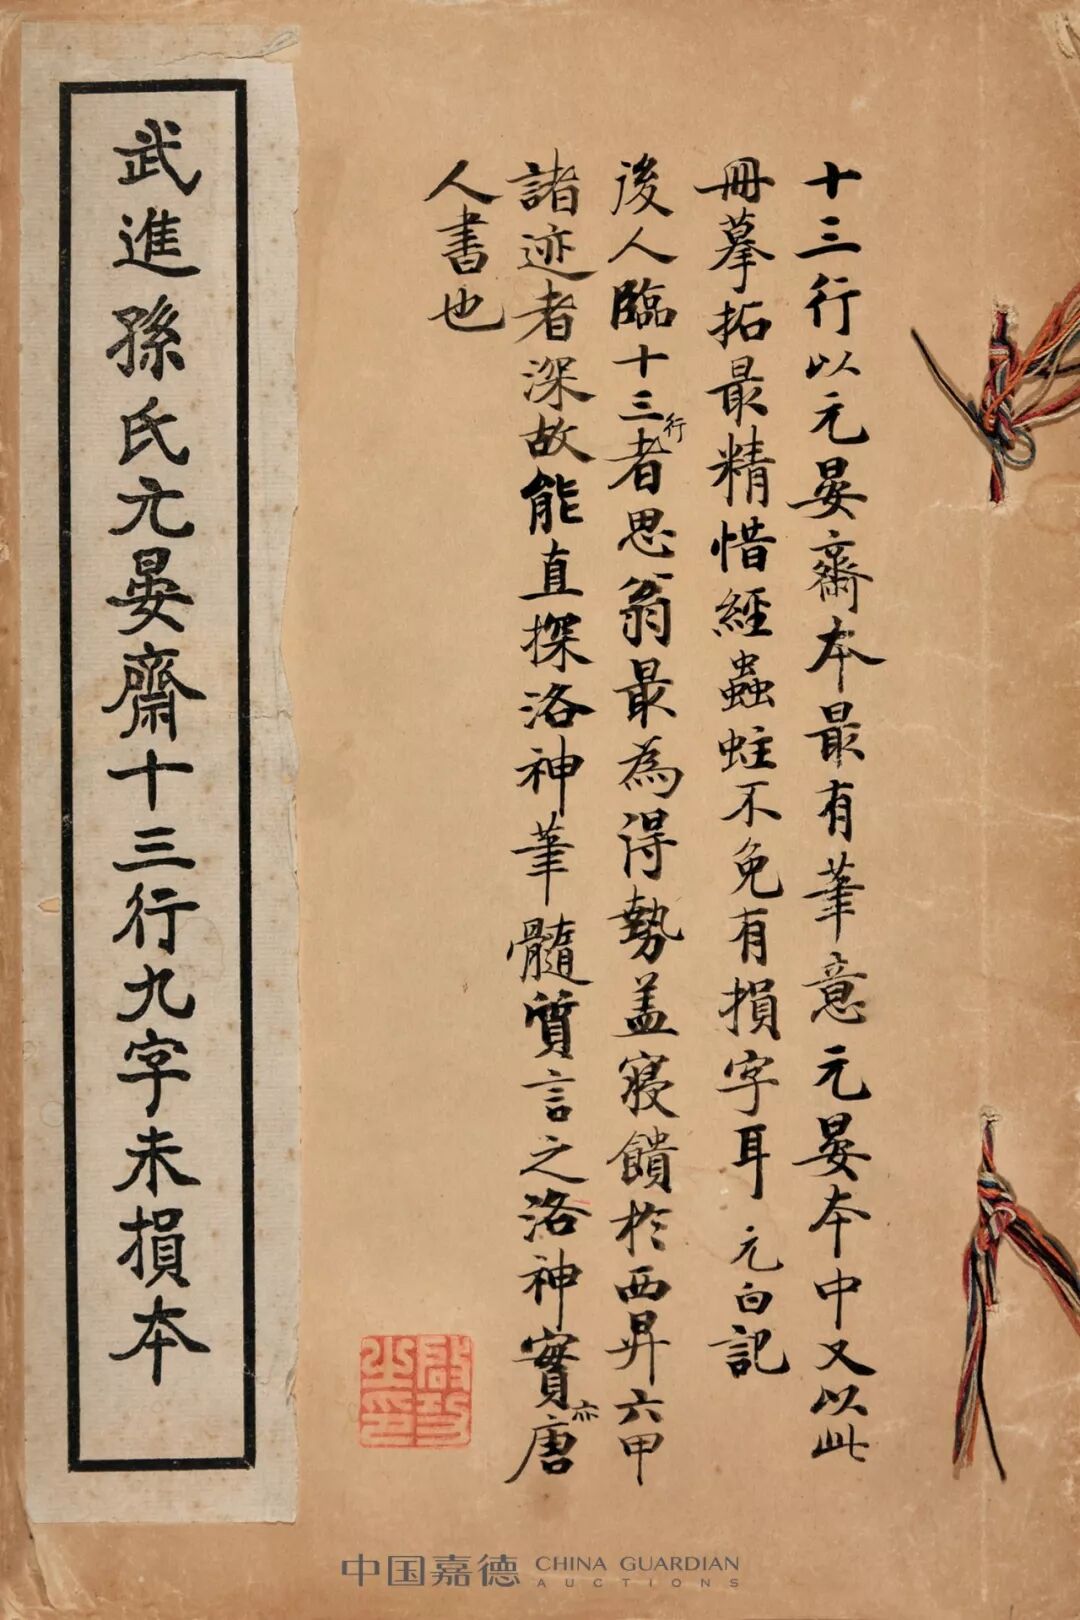 十三行以元晏齋本最有筆意元晏本中又以此
冊摹拓最精惜經蟲蛀不免有損字耳 元白記
後人臨十三行者思翁最為得勢盖寝饋於西昇六甲
諸迹者深故能直探洛神筆髓質言之洛神實亦唐
人書也
啟功之印
武進孫氏元晏齋十三行九字未損本
中国嘉德 CHINA GUARDIAN
AUCTIONS